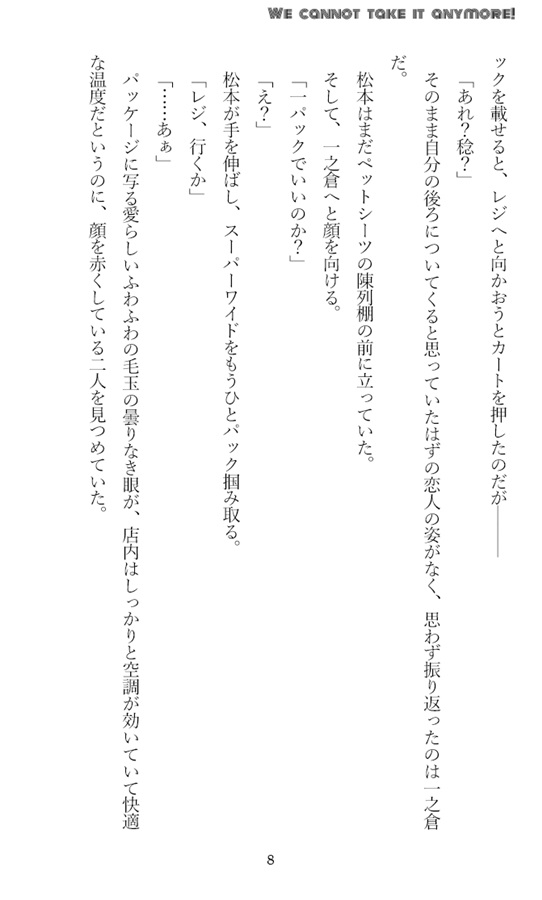 WE CANNOT TAKE IT ANYMORE!
ックを載せると、レジへと向かおうとカートを押したのだが――
「あれ？稔？」
そのまま自分の後ろについてくると思っていたはずの恋人の姿がなく、思わず振り返ったのは一之倉
だ。
松本はまだペットシーツの陳列棚の前に立っていた。
そして、一之倉へと顔を向ける。
「一パックでいいのか？」
「え？」
松本が手を伸ばし、スーパーワイドをもうひとパック掴み取る。
「レジ、行くか」
「……あぁ」
パッケージに写る愛らしいふわふわの毛玉の曇りなき眼が、店内はしっかりと空調が効いていて快適
な温度だというのに、顔を赤くしている二人を見つめていた。
8